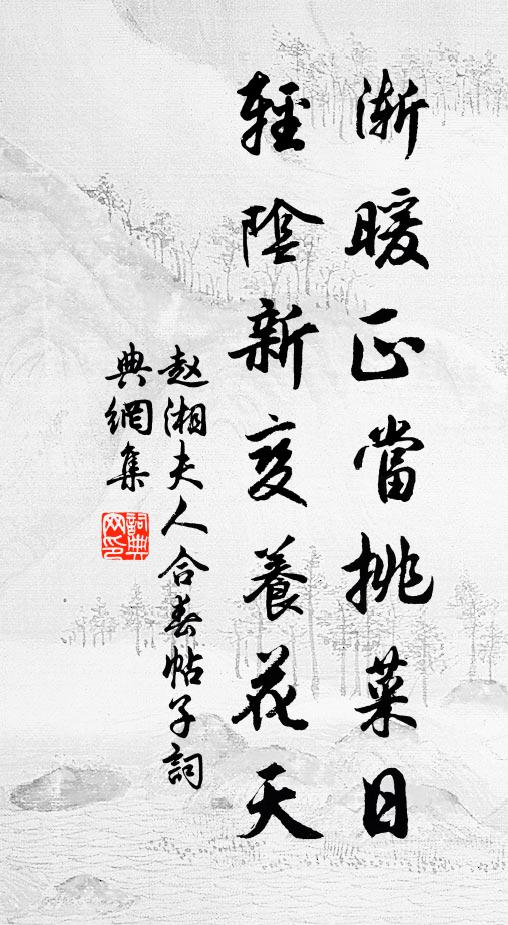 漸暖正當挑菜日
輕陰新變養花天
赵湘夫人合春帖子詞
典網集
詞典網印